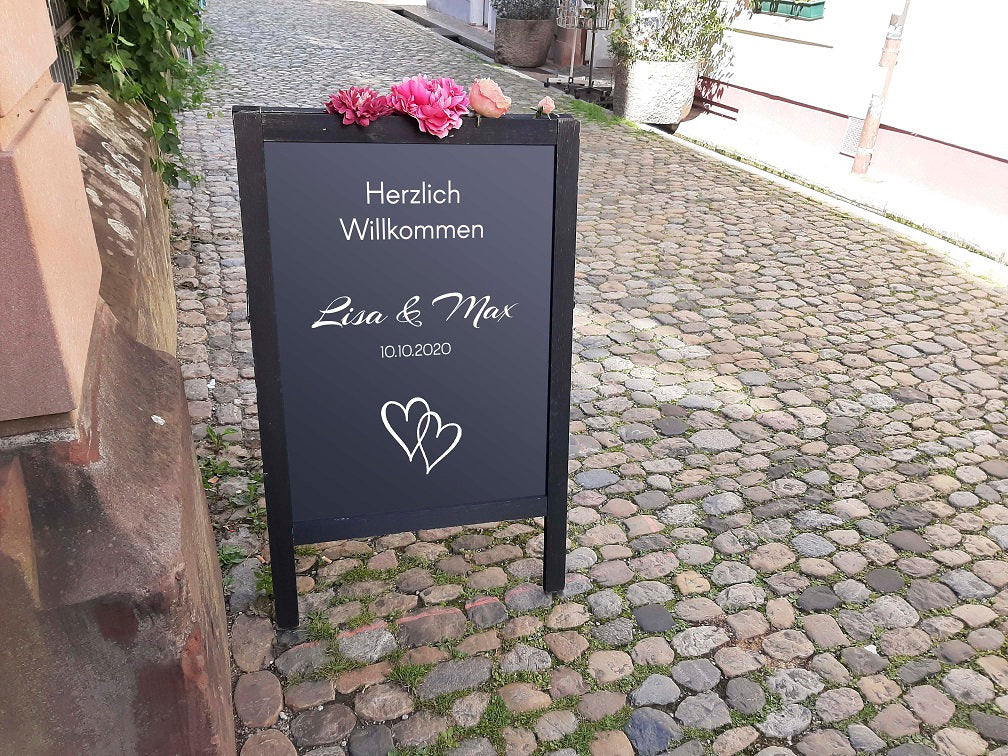 Herzlich
Willkommen
Lisa & Max
10.10.2020